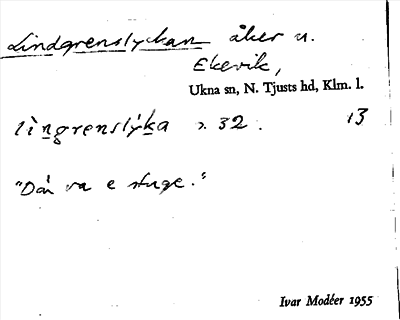 Lindgrenslyckan åker u.
Ekevik,
Ukna sn, N. Tjusts hd, Klm. l.
lìngrenslýka s. 32. 13
"Dår va e stuge."
Ivar Modéer 1955